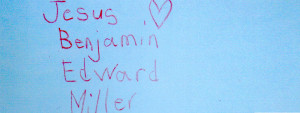 Jesus ♡
Benjamin
Edward
Miller